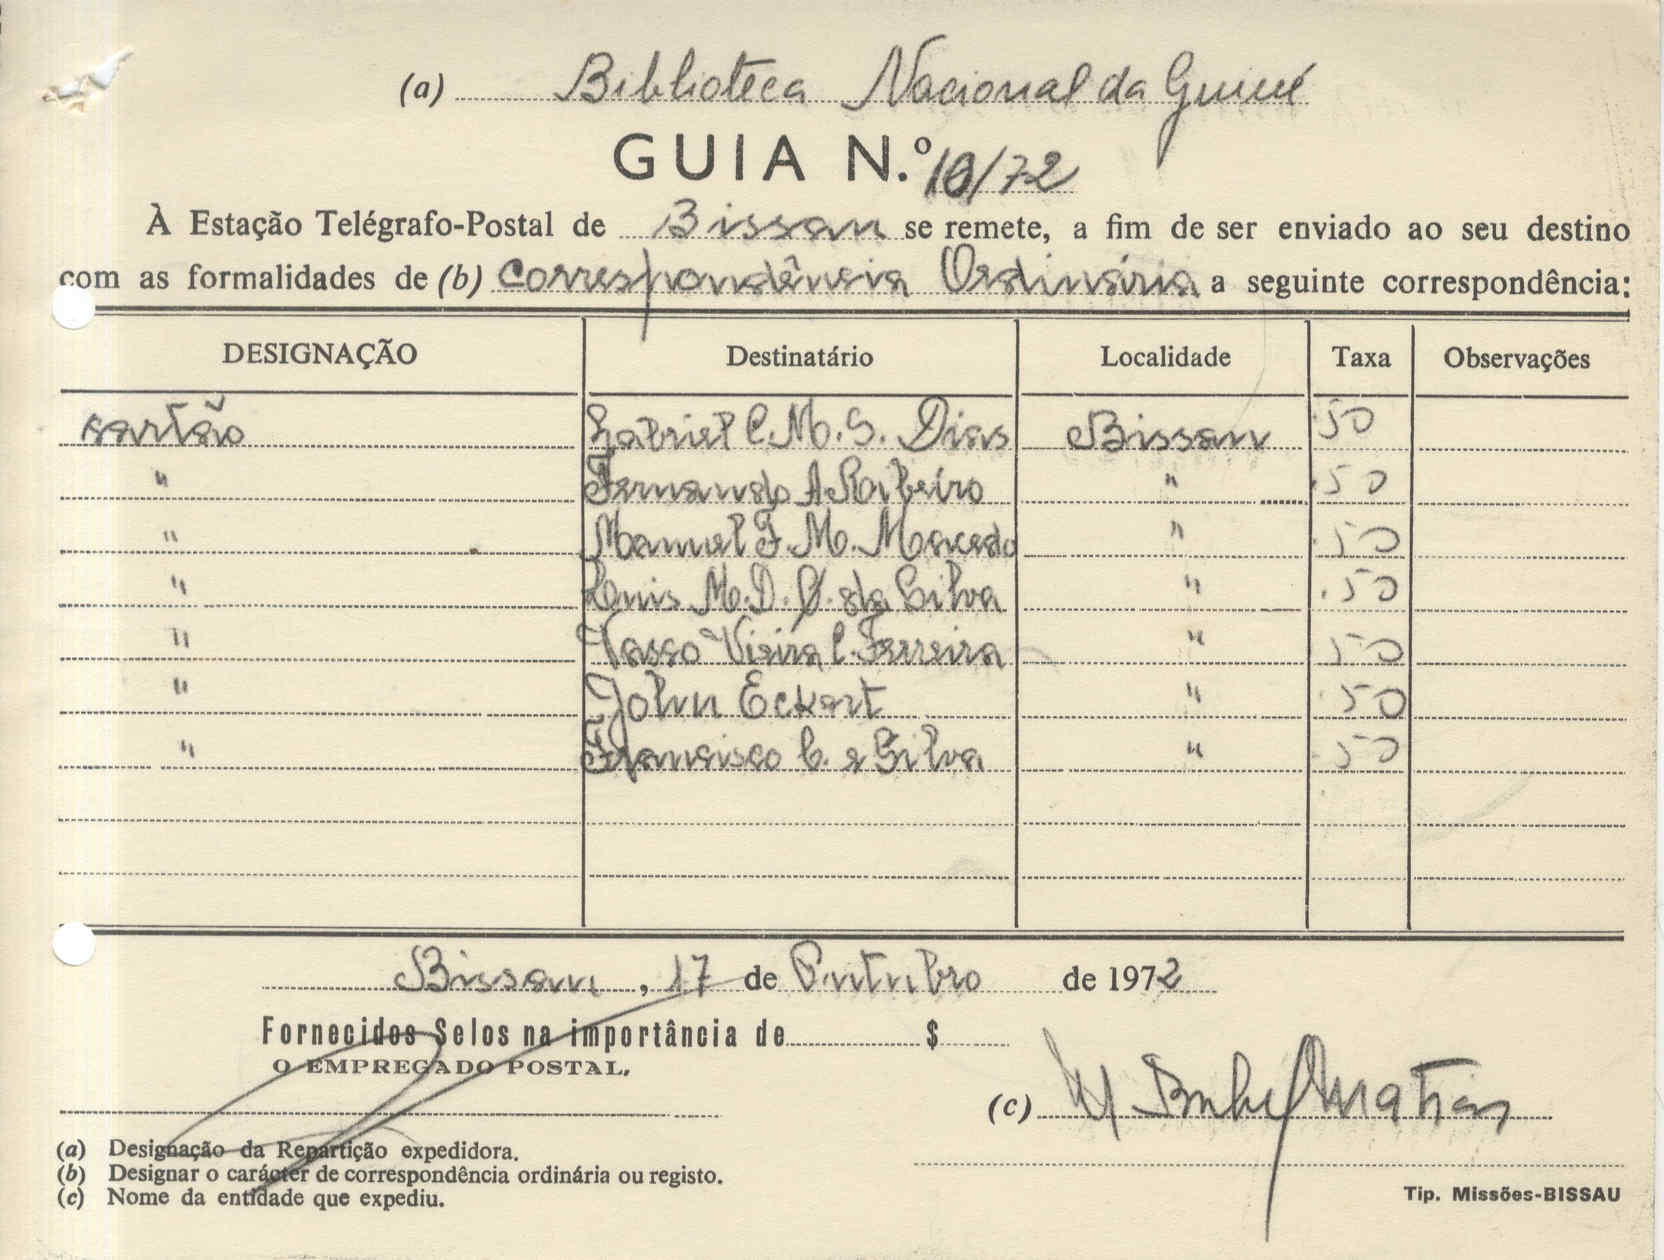 (a) Biblioteca Nacional da Guiné
GUIA N.º 10/72
À Estação Telégrafo-Postal de Bissau se remete, a fim de ser enviado ao seu destino
com as formalidades de (b) Correspondência Ordinária a seguinte correspondência:
DESIGNAÇÃO Destinatário Localidade Taxa Observações
cartão Gabriel C. M. S. Dias Bissau .50
" Fernando A. Ribeiro " .50
" Manuel F. M. Macedo " .50
" Luis M. D. da Silva " .50
" Vasco Vieira C. Ferreira " .50
" John Eckart " .50
" Francisco C. e Silva " .50
Bissau, 17 de Outubro de 1972
Fornecidos Selos na importância de $
O EMPREGADO POSTAL,
(c)
(a) Designação da Repartição expedidora.
(b) Designar o carácter de correspondência ordinária ou registo.
(c) Nome da entidade que expediu.
Tip. Missões-BISSAU